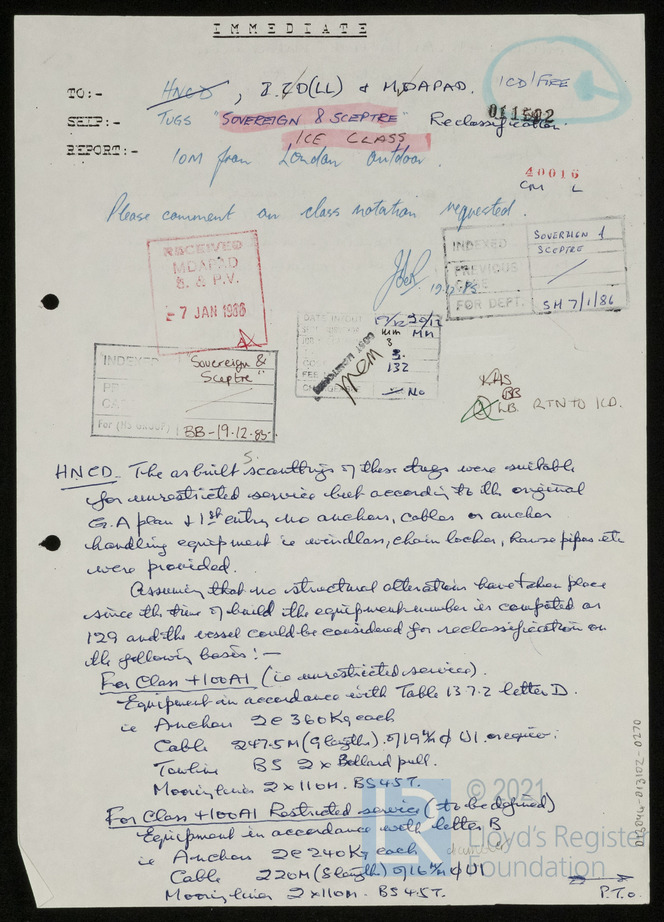 IMMEDIATE
TO:- HNCD, & MDAPAD. ICD/FIRE
SHIP:- TUGS "SOVEREIGN & SCEPTRE" Reclassification.
011502
ICE CLASS
REPORT:- 10M from London outdoor
40016
CM L
Please comment on class notation requested.
RECEIVED
MDAPAD
& P.V.
-7 JAN 1986
INDEXED SOVEREIGN &
SCEPTRE
PREVIOUS
CASE
FOR DEPT. SH 7/1/86
19.12.85.
MM
132
No
MEM
INDEXED "Sovereign &
Sceptre"
For (NS GROUP) BB-19.12.85.
KAS
BB
RTN TO ICD.
HNCD. The as built scantlings of these tugs were suitable
for unrestricted service but according to the original
G.A plan & 1st entry no anchors, cables or anchor
handling equipment ie windlass, chain locker, hawse pipes etc
were provided.
Assuming that no structural alterations have taken place
since the time of build the equipment number is computed as
129 and the vessel could be considered for reclassification on
the following basis:-
For Class +100A1 (ie unrestricted service).
Equipment in accordance with Table 13.7.2 letter D.
ie Anchors 2 @ 360Kg each
Cable 247.5M (9 lengths) of 19 m/m φ U1 or equiv.
Towline BS 2 x Bollard pull.
Mooring lines 2 x 110M. BS 45T.
For Class +100A1 Restricted service (to be defined)
Equipment in accordance with letter B
ie Anchors 2 @ 240Kg each
Cable 220M (8 lengths) of 16 m/m φ U1
Mooring lines 2 x 110M. BS 45T.
P.T.O.
© 2021
Lloyd's Register
Foundation